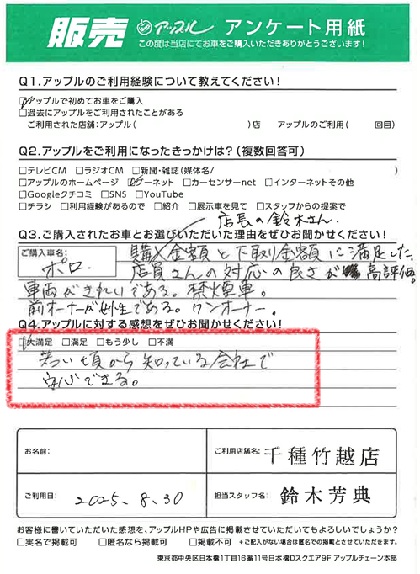 販売 アップル アンケート用紙
この度は当店にてお車をご購入いただきありがとうございます!
Q1.アップルのご利用経験について教えてください!
☑アップルで初めてお車をご購入
☐過去にアップルをご利用されたことがある
ご利用された店舗:アップル( )店 アップルのご利用( 回目)
Q2.アップルをご利用になったきっかけは?(複数回答可)
☐テレビCM ☐ラジオCM ☐新聞・雑誌(媒体名/ )
☐アップルのホームページ ☑グーネット ☐カーセンサーnet ☐インターネットその他
☐Googleクチコミ ☐SNS ☐YouTube
☐チラシ ☐利用経験があるので ☐紹介 ☐展示車を見て ☐スタッフからの提案で
店長の鈴木さん
Q3.ご購入されたお車とお選びいただいた理由をぜひお聞かせください!
ご購入車名:
ポロ
購入金額と下取り金額に満足した。
店員さんの対応の良さが高評価。
車両がきれいである。禁煙車。
前オーナーが女性である。ワンオーナー。
Q4.アップルに対する感想をぜひお聞かせください!
☑大満足 ☐満足 ☐もう少し ☐不満
若い頃から知っている会社で
安心できる。
お名前:
ご利用店舗名: 千種竹越店
ご利用日: 2025.8.30
担当スタッフ名: 鈴木芳典
お客様に書いていただいた感想を、アップルHPや広告に掲載させていただいてもよろしいでしょうか?
☐実名で掲載可 ☐匿名なら掲載可 ☐掲載不可 *ご記入がない場合は匿名での掲載とさせていただきます。
東京都中央区日本橋1丁目16番11号日本橋Dスクエア9F アップルチェーン本部